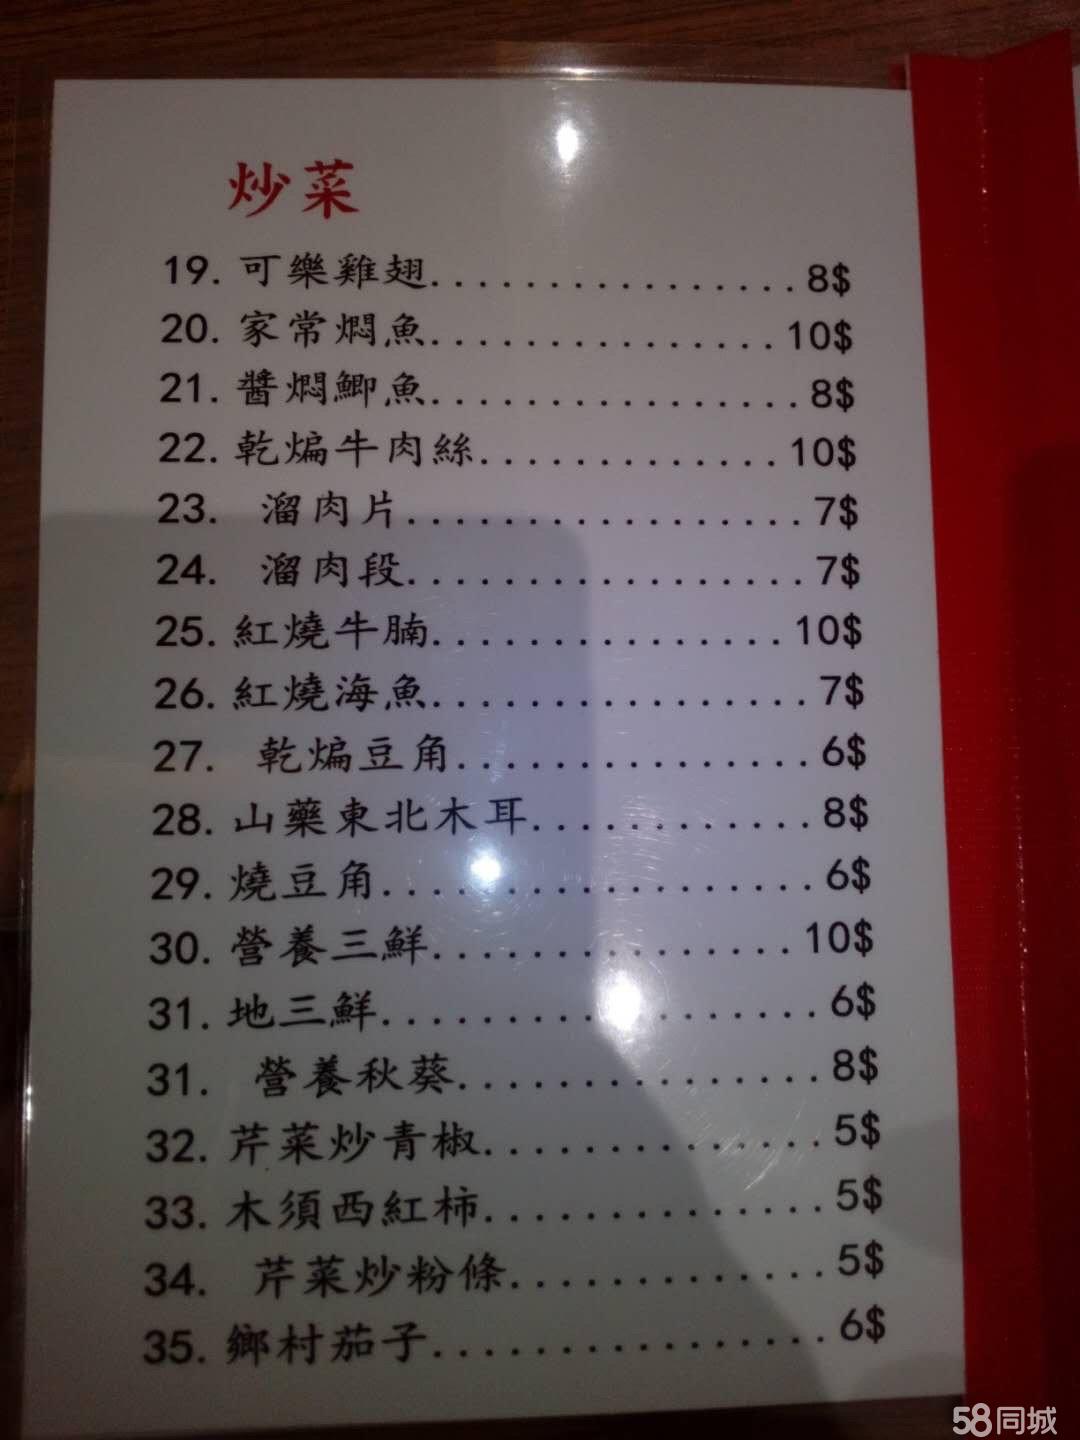 炒菜
19. 可樂雞翅..................8$
20. 家常燜魚.................10$
21. 醬燜鯽魚..................8$
22. 乾煸牛肉絲..............10$
23. 溜肉片...................7$
24. 溜肉段...................7$
25. 紅燒牛腩.................10$
26. 紅燒海魚..................7$
27. 乾煸豆角................6$
28. 山藥東北木耳............8$
29. 燒豆角....................6$
30. 營養三鮮.................10$
31. 地三鮮....................6$
31. 營養秋葵................8$
32. 芹菜炒青椒..............5$
33. 木須西紅柿..............5$
34. 芹菜炒粉條.............5$
35. 鄉村茄子.................6$
58同城